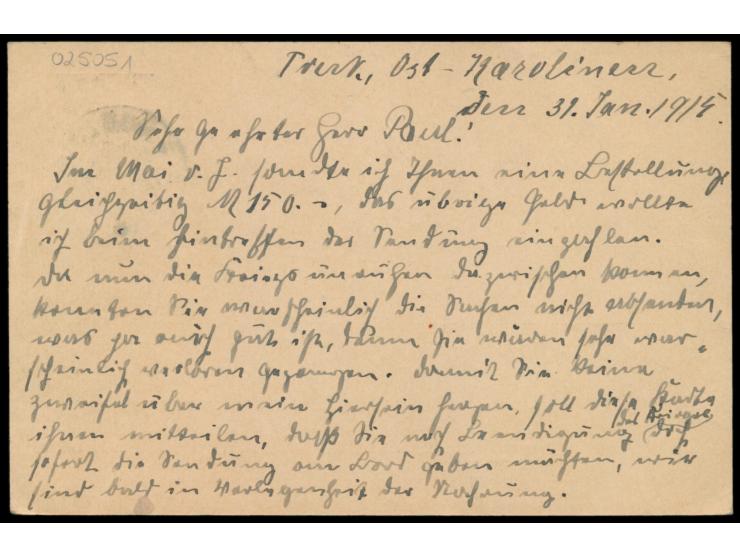 025051
Truk, Ost-Karolinen,
den 31. Jan. 1915.
Sehr geehrter Herr Paul!
Im Mai v. J. sandte ich Ihnen eine Bestellung,
gleichzeitig M 150.-, das übrige Geld wollte
ich beim Eintreffen der Sendung einzahlen.
Da nun die Kriegsunruhen dazwischen kommen,
konnten Sie warscheinlich die Sachen nicht absenden,
was ja auch gut ist, denn sie wären sehr war-
scheinlich verloren gegangen. Damit Sie keine
zweifel über mein Hiersein hegen, soll diese Karte
ihnen mitteilen, daß Sie nach Beendigung des Krieges doch
sofort die Sendung an Bord geben möchten, wir
sind bald in Verlegenheit der Nahrung.